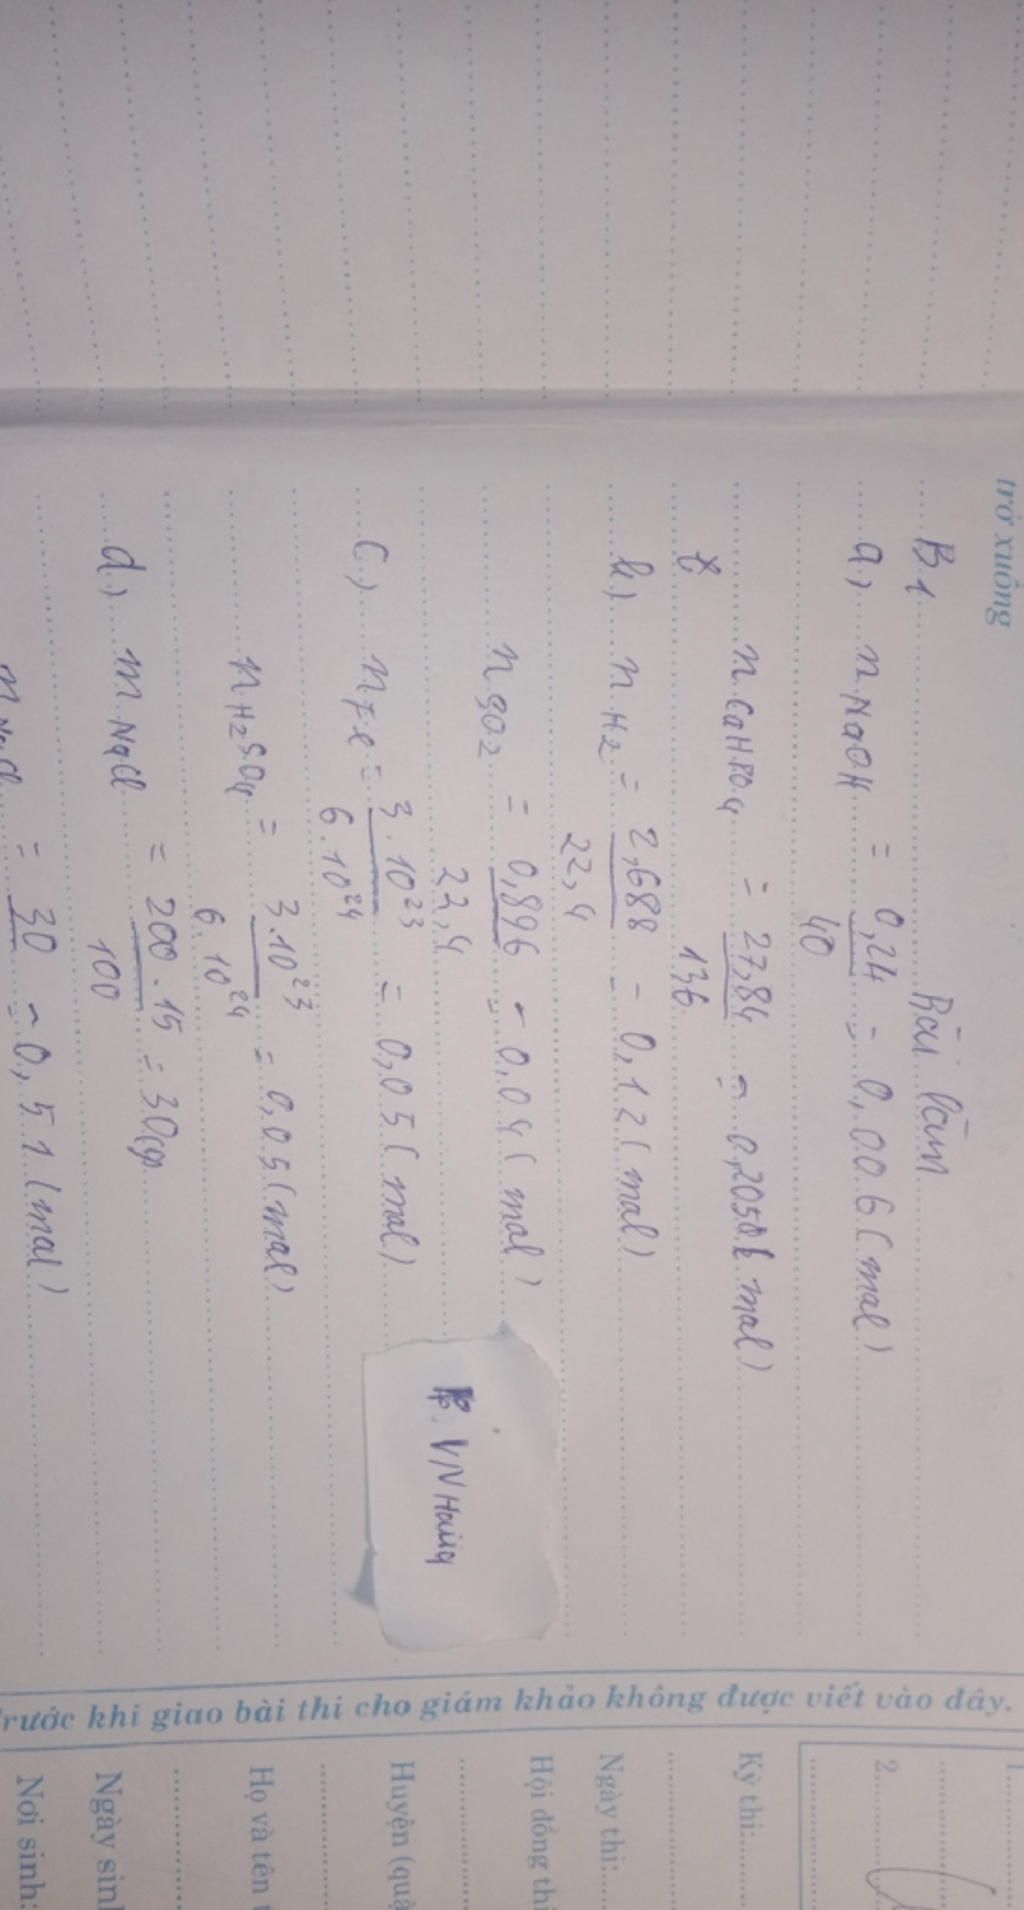 trở xuống
B1 Bài làm
a) n NaOH = 0,24 / 40 = 0,006 (mol)
n CaHPO4 = 27,84 / 136 = 0,205 (mol)
b) n H2 = 2,688 / 22,4 = 0,12 (mol)
n SO2 = 0,896 / 22,4 = 0,04 (mol)
c) n Fe = 3.10^23 / 6.10^24 = 0,05 (mol)
n H2SO4 = 3.10^23 / 6.10^24 = 0,05 (mol)
d) m NaCl = 200.15 / 100 = 30(g)
n NaCl = 30 = 0,51 (mol)
VNHaiig
Trước khi giao bài thi cho giám khảo không được viết vào đây.
1
2
Kỳ thi:
Ngày thi:
Hội đồng thi
Huyện (quậ
Họ và tên t
Ngày sinh
Nơi sinh: